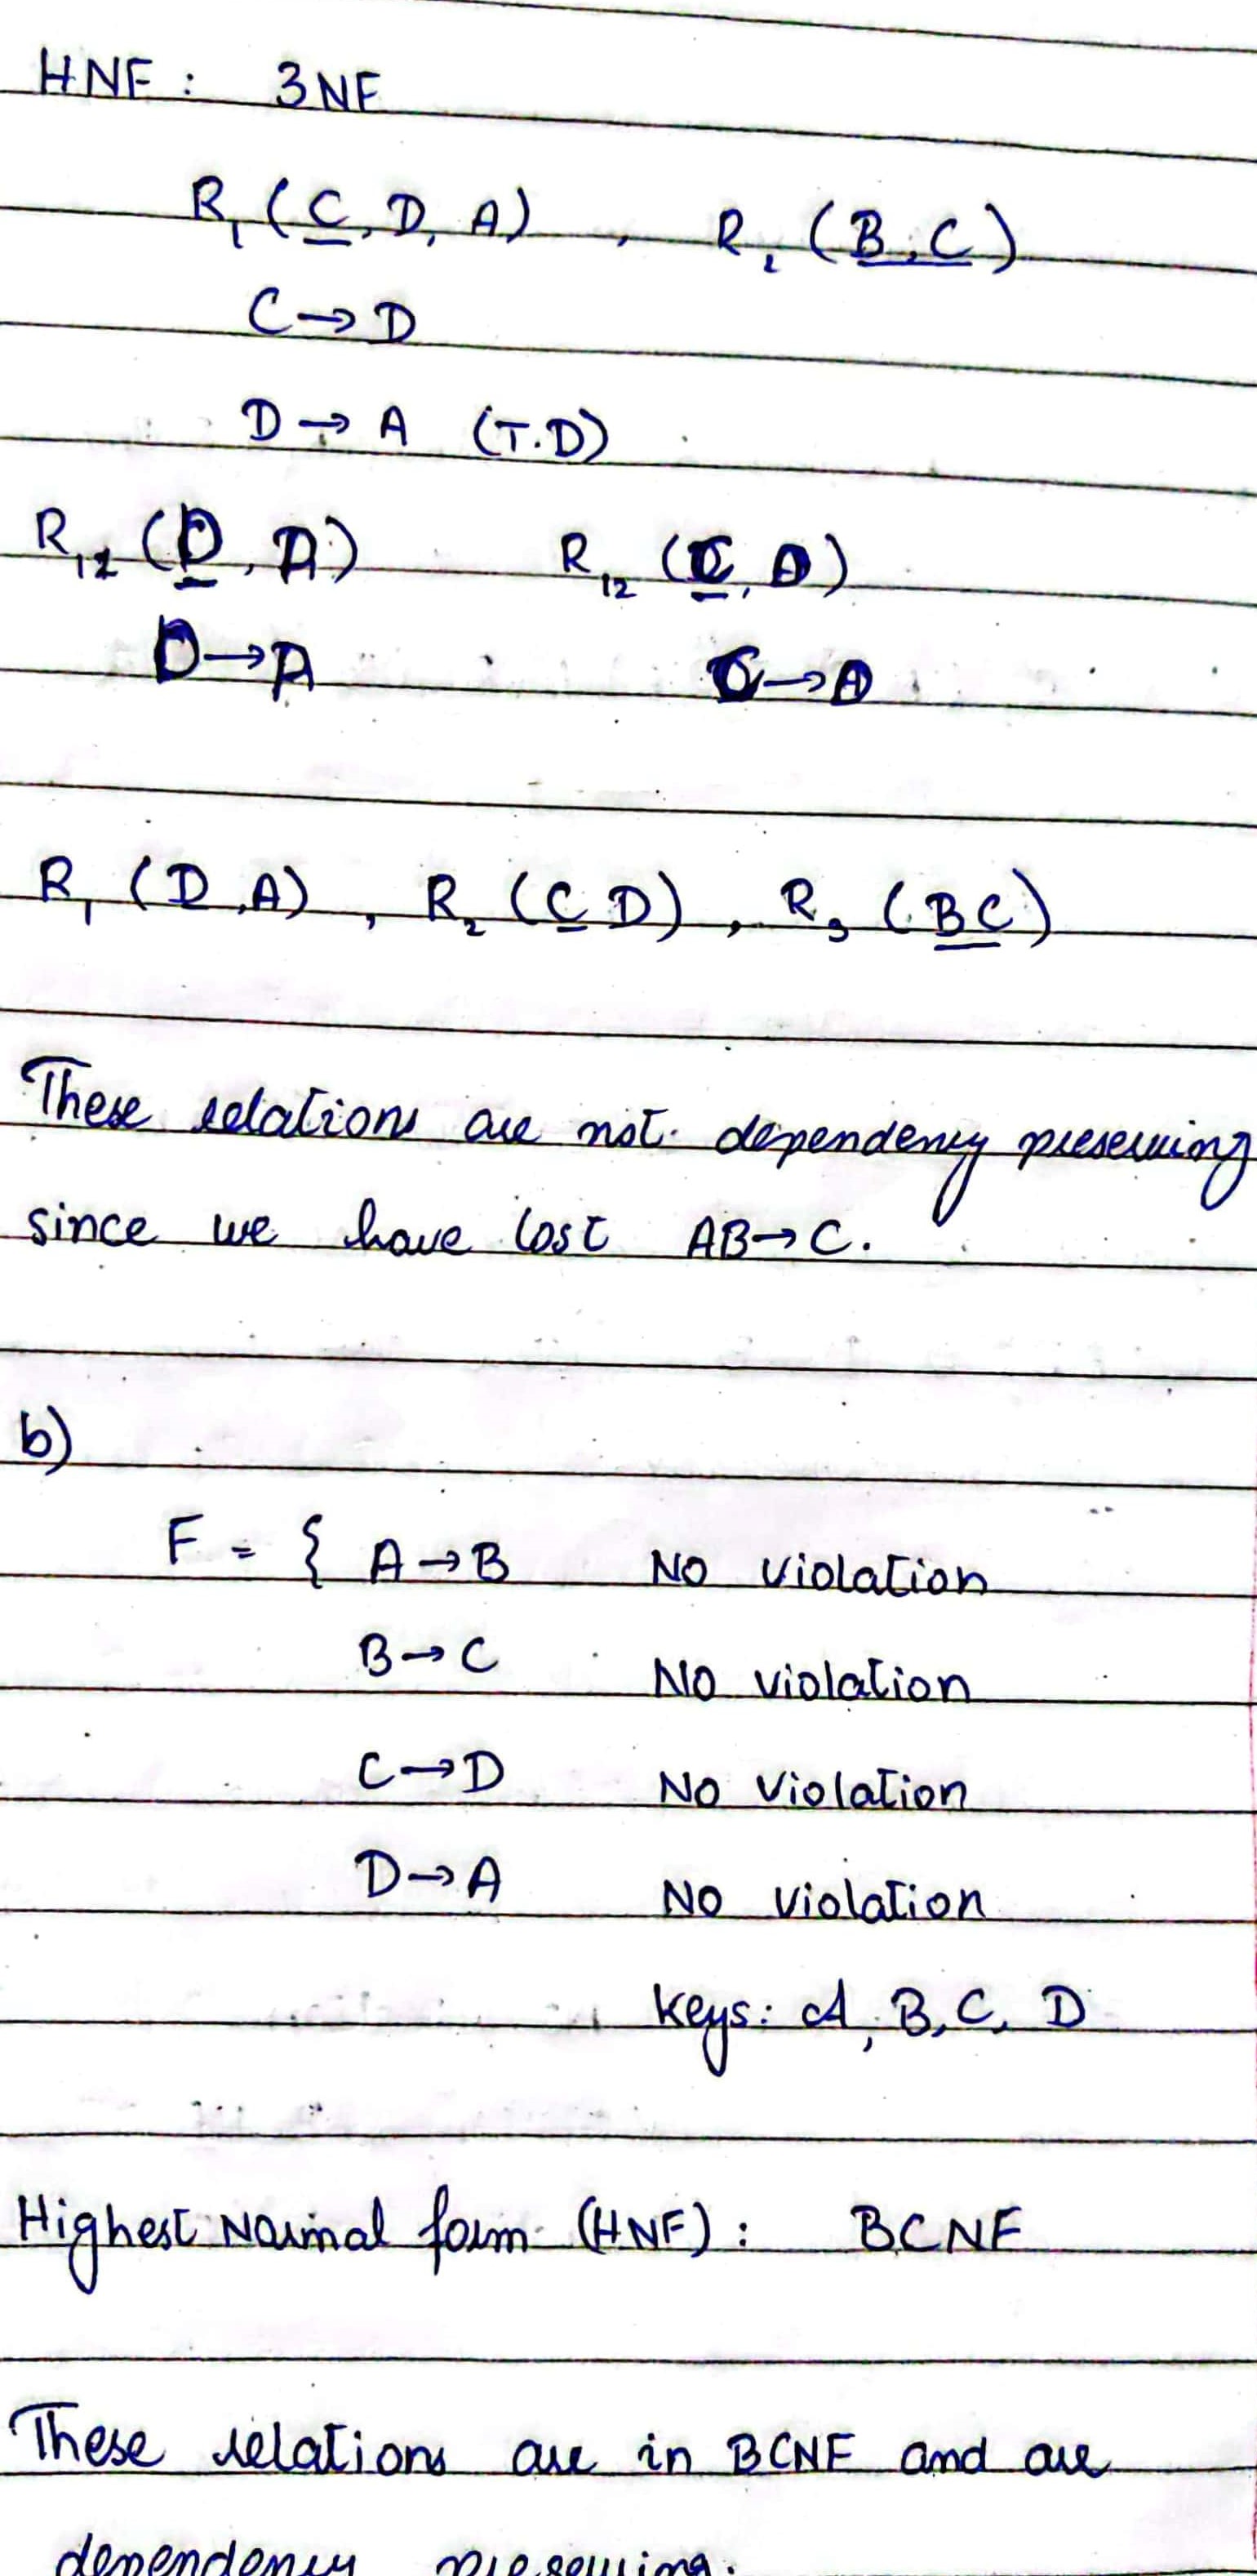 HNF : 3NF
R₁ ( C, D, A ) , R₂ ( B, C )
C → D
D → A (T.D)
R₁₂ ( D, A ) R₁₂ ( C, D )
D → A C → D
R₁ ( D, A ) , R₂ ( C D ) , R₃ ( BC )
These relations are not dependency preserving
since we have lost AB → C.
b)
F = { A → B No violation
B → C No violation
C → D No violation
D → A No violation
Keys: A, B, C, D
Highest Normal form (HNF) : BCNF
These relations are in BCNF and are
dependency preserving.